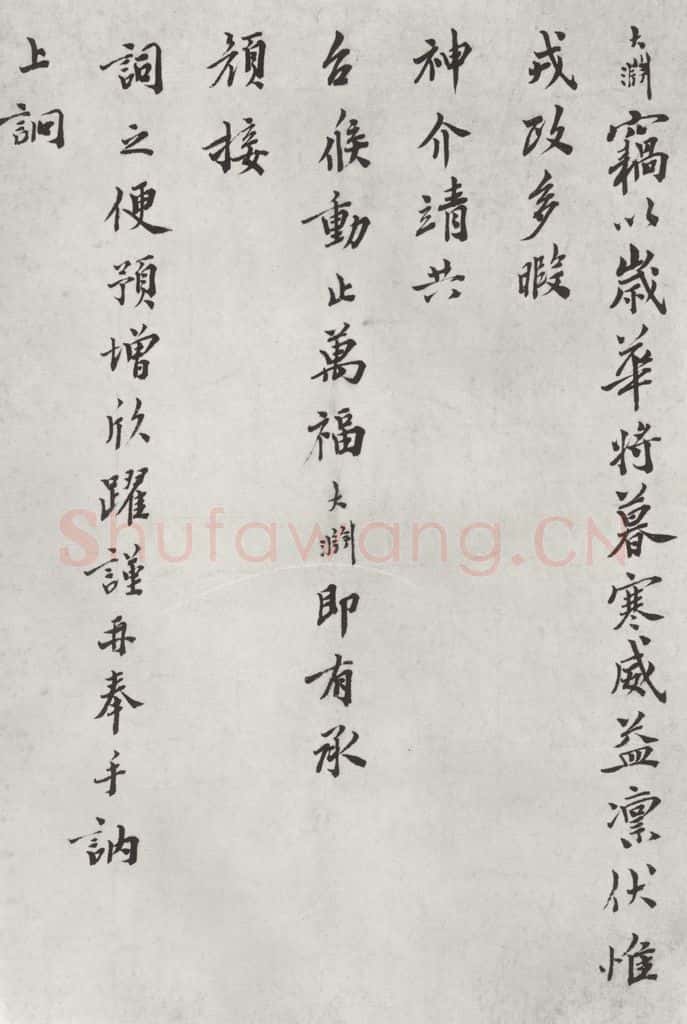 大淵竊以歲華將暮寒威益凜伏惟
戎政多暇
神介靖共
台候動止萬福大淵即有承
顏接
詞之便預增欣躍謹再奉手訥
上詗
Shufawang.CN